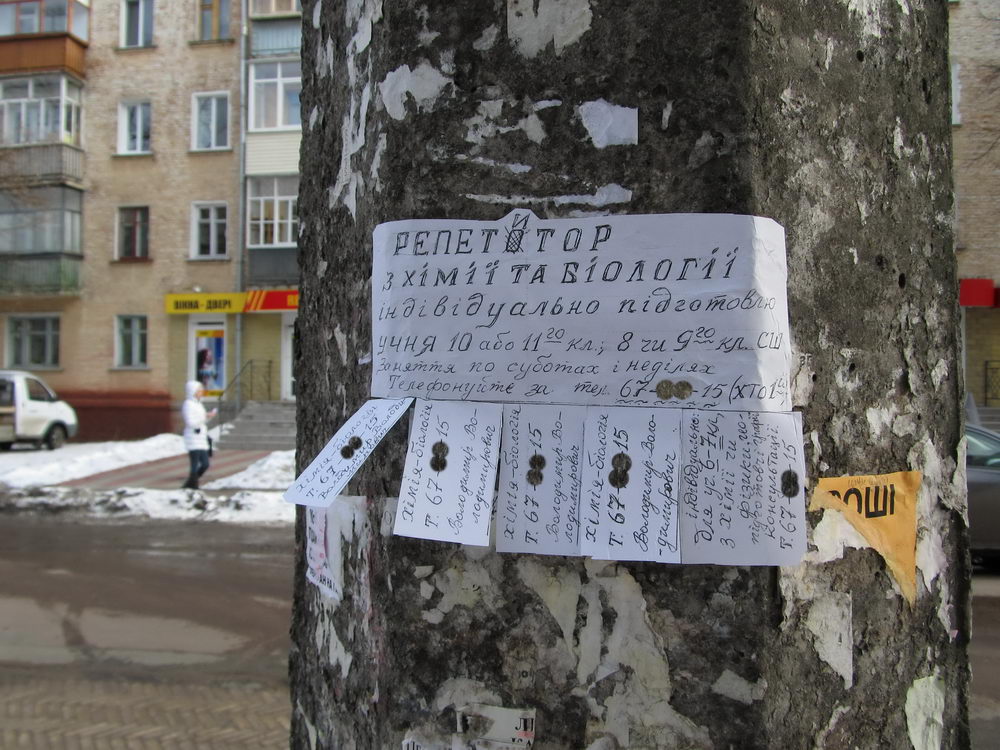 ВІКНА-ДВЕРІ
РЕПЕТИТОР
З ХІМІЇ ТА БІОЛОГІЇ
індівідуально підготовлю
учня 10 або 11²⁰ кл.; 8 чи 9²⁰ кл. СШ
Заняття по суботах і неділях
Телефонуйте за тел. 67- -15
Хімія-біологія
Т. 67 15
Хімія-біологія
Т. 67 15
Володимир Во-
лодимирович
Хімія-біологія
Т. 67 -15
Володимир Во-
лодимирович
Хімія-біологія
Т. 67 15
Володимир Воло-
димирович
індівідуально:
для уч. 6-7 кл.,
з хімії чи гео-
фізики
консультації.
Т. 67 15
ОШІ